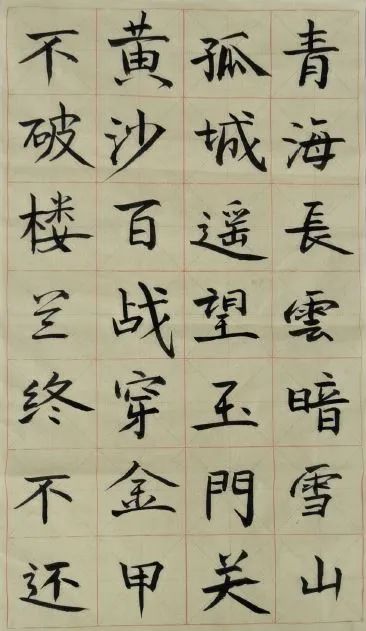 青海長雲暗雪山
孤城遥望玉門关
黄沙百战穿金甲
不破楼兰终不还